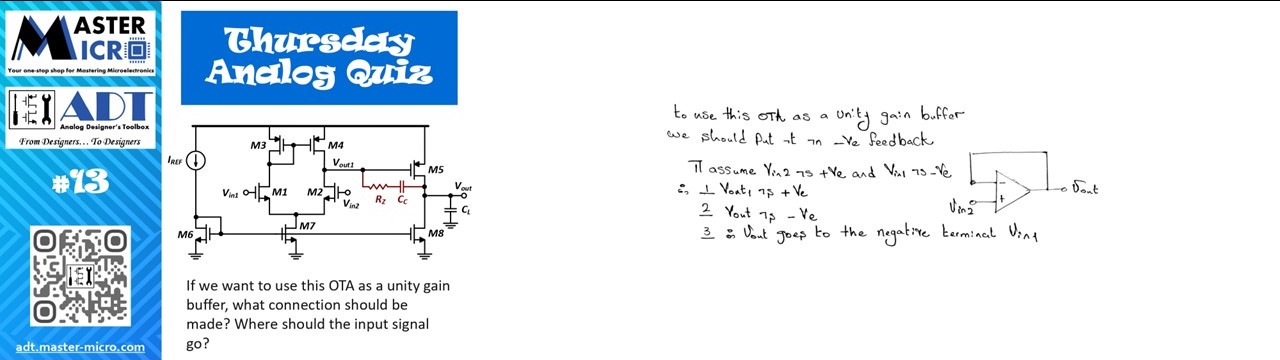 MASTER
MICRO
Your one-stop shop for Mastering Microelectronics
ADT
Analog Designer's Toolbox
From Designers... To Designers
#93
adt.master-micro.com
Thursday
Analog Quiz
M3 M4
IREF
Vout1
M5
Vin1 M1 M2 Vin2
RZ CC
Vout
CL
M6 M7 M8
If we want to use this OTA as a unity gain
buffer, what connection should be
made? Where should the input signal
go?
to use this OTA as a unity gain buffer
we should put it in -Ve feedback
assume Vin2 is +Ve and Vin1 is -Ve
1 Vout1 is +Ve
2 Vout is -Ve
3 ∴ Vout goes to the negative terminal Vin1
-
+
Vin2
Vout